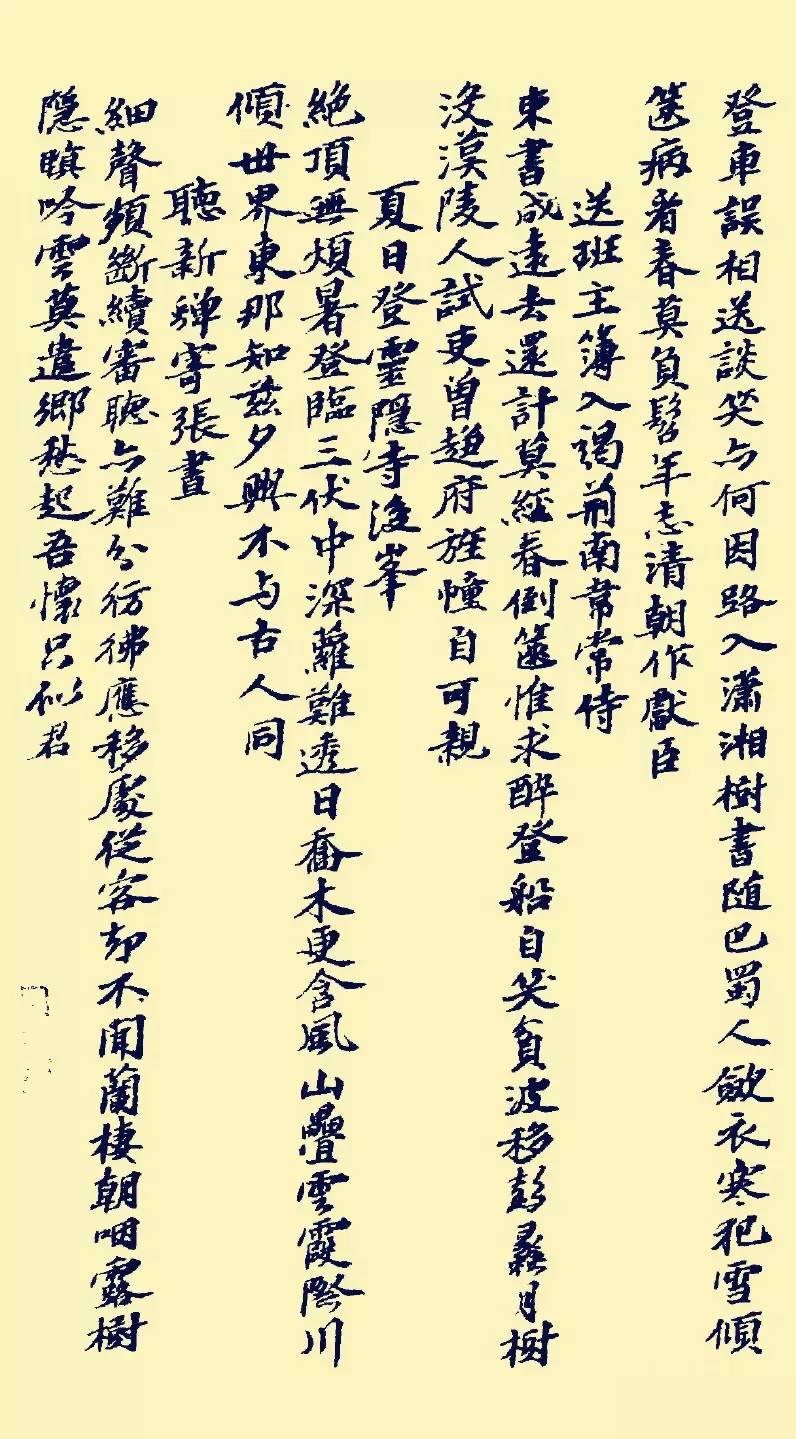 登車誤相送談笑与何因路入瀟湘樹書随巴蜀人斂衣寒犯雪傾
箧病看春莫負髫年志清朝作獻臣
送班主簿入謁荊南韋常侍
束書成遠去還計莫經春倒箧惟求醉登船自笑貧波移彭蠡月樹
没漢陵人試吏曾趍府旌幢自可親
夏日登靈隱寺後峯
絶頂無煩暑登臨三伏中深蘿難透日喬木更含風山疊雲霞際川
傾世界東那知兹夕興不与古人同
聴新蟬寄張晝
細聲頻斷續審聴亦難分彷彿應移處從容却不聞蘭棲朝咽露樹
隱暝吟雲莫遣鄉愁起吾懷只似君